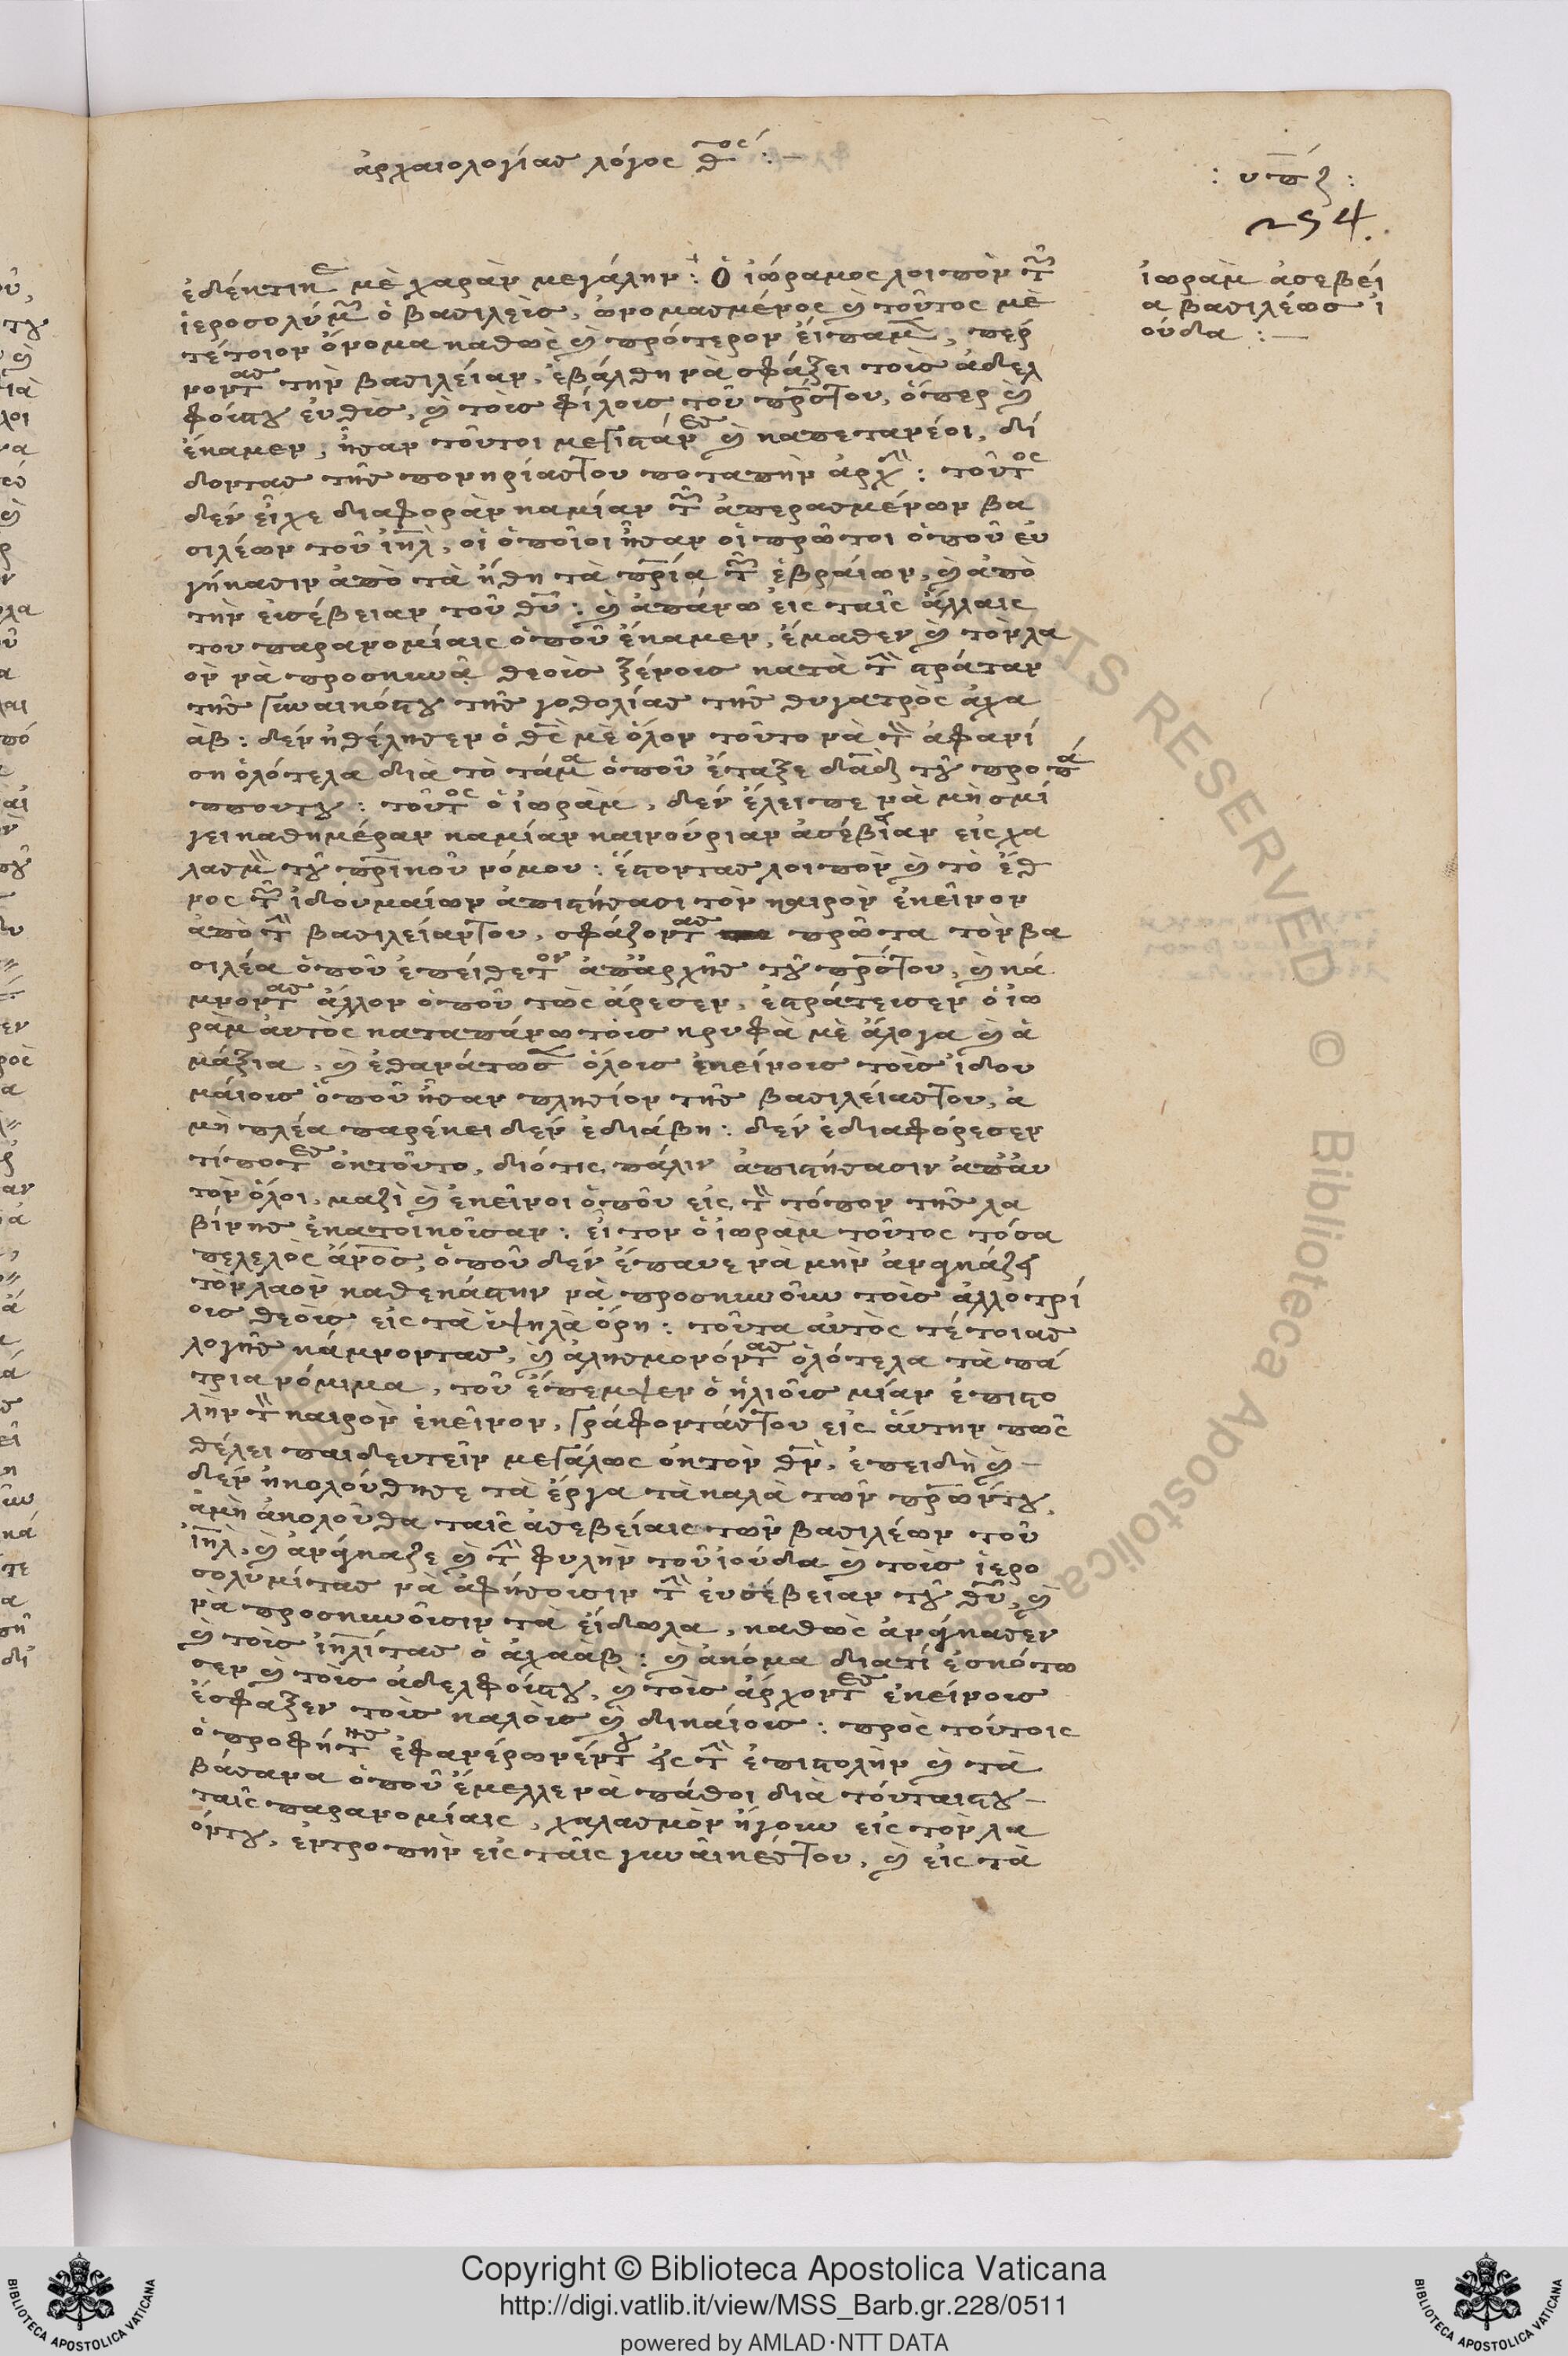 ἀρχαιολογίας λόγος θ̅ος :—
: υπζ :
254.
ἰωρὰμ ἀσεβεί
α βασιλέως ἰ
ούδα :—
μὲ χαρὰν μεγάλην : Ὁ ἰώραμος λοιπὸν τῶν
ἱεροσολύμων ὁ βασιλεὺς, ὠνομασμένος καὶ τοῦτος μὲ
τέτοιον ὄνομα καθὼς καὶ πρότερον εἴπαμεν, πέρ
νοντας τὴν βασιλείαν, ἐβάλθη νὰ σφάξει τοὶς ἀδελ
φοίςτου εὐθὶς, καὶ τοὶς φίλοις τοῦ πρςτου, ὅπερ καὶ
ἔκαμεν, ἦσαν τοῦτοι μεγιστάνες καὶ καπετανέοι, δί
δοντας τῆς πονηρίαςτου ποταπὴν ἀρχὴν : τοῦτος
δεν εἶχε διαφορὰν καμίαν τῶν ἀπερασμένων βα
σιλέων τοῦ ἰηλ, οἱ ὁποῖοι ἦσαν οἱ πρῶτοι ὁποῦ εὐ
γήκασιν ἀπὸ τὰ ἤθη τὰ πρια τῶν ἑβραίων, καὶ ἀπὸ
τὴν εὐσέβειαν τοῦ θυ : καὶ ἀπάνω εἰς ταῖς ἄλλαις
του παρανομίαις ὁποῦ ἔκαμεν, ἔμαθεν καὶ τὸν λα
ὸν νὰ προσκυνᾶ θεοὶς ξένοις κατὰ τὴν πράταν
τῆς γυναικόςτου τῆς γοθολίας τῆς θυγατρὸς ἀχα
ὰβ : δὲν ἠθέλησεν ὁ θς μὲ ὅλον τοῦτο νὰ τὸν ἀφανί
ση ὁλότελα διὰ τὸ τάμα ὁποῦ ἔταξε δαδ τοῦ προπά
ππουτου : τοῦτος ὁ ἰωρὰμ, δὲν ἔλειπε νὰ μὴ σμί
γει καθημέραν καμίαν καινούριαν ἀσέβιαν εἰς χα
λασμὸν τοῦ πρικοῦ νόμου : ἔστοντας λοιπὸν καὶ τὸ ἔθ
νος τῶν ἰδουμαίων ἀπιστήσασι τὸν καιρὸν ἐκεῖνον
ἀπὸ τὴν βασιλείαντου, σφάζοντας πρῶτα τὸν βα
σιλέα ὁποῦ ἐπείθετον ἀπἀρχῆς τοῦ πρςτου, καὶ κά
μνοντας ἄλλον ὁποῦ τῶς ἄρεσεν, ἐκράτεισεν ὁ ἰω
ρὰμ ἀυτὸς καταπάνω τοὶς κρυφὰ μὲ ἄλογα καὶ ἁ
μάξια, καὶ ἐθανάτωσεν ὅλοις ἐκείνοις τοὶς ἰδου
μαίοις ὁποῦ ἦσαν πλησίον τῆς βασιλείαςτου, ἀ
μὴ πλέα παρέκει δὲν ἐδιάβη : δὲν ἐδιαφόρεσεν
τίποτες ὀκτοῦτο, διότις πάλιν ἀπιστήσασιν ἀπἀυ
τὸν ὅλοι, μαζὶ καὶ ἐκεῖνοι ὁποῦ εἰς τὸν τόπον τῆς λα
βίνης ἐκατοικοῦσαν : εἶτον ὁ ἰωρὰμ τοῦτος τόσα
πελελὸς ἄνος, ὁποῦ δὲν ἔπαυε νὰ μὴν ἀνγκάζη
τὸν λαὸν καθεκάστην νὰ προσκυνοῦν τοὶς ἀλλοτρί
οις θεοὶς εἰς τὰ ὑψηλὰ ὄρη : τοῦτα αὐτὸς τέτοιας
λογῆς κάμνοντας, καὶ ἀλησμονόντας ὁλότελα τὰ πά
τρια νόμιμα, τοῦ ἔπεμψεν ὁ ἡλιοῦς μίαν ἐπιστο
λὴν τὸν καιρὸν ἐκεῖνον, γράφοντάςτου εἰς ἄυτην πῶς
θέλει παιδευτεῖν μεγάλως ὀκτὸν θν, ἐπειδὴ καὶ —
δὲν ἠκολούθησε τὰ ἔργα τὰ καλὰ τῶν πρωντου,
ἀμὴ ἀκολούθα ταῖς ἀσεβείαις τῶν βασιλέων τοῦ
ἰηλ, καὶ ἀνάγκαζε καὶ τὴν φυλὴν τοῦ ἰούδα καὶ τοὶς ἱερο
σολυμίτας νὰ ἀφήσοισιν τὴν εὐσέβειαν τοῦ θυ, καὶ
νὰ προσκυνοῦσιν τὰ εἴδωλα, καθὼς ἀνάγκασεν
καὶ τοὶς ἰηλίτας ὁ ἀχαὰβ : καὶ ἀκόμα διατί ἐσκότω
σεν καὶ τοὶς ἀδελφοίςτου, καὶ τοὶς ἄρχοντες ἐκείνοις
ἔσφαξεν τοὶς καλοὶς καὶ δικαίοις : πρὸς τούτοις
ὁ προφήτης ἐφανέρωνέντου εἰς τὴν ἐπιστολὴν καὶ τὰ
βάσανα ὁποῦ ἔμελλε νὰ πάθοι διὰ τούταιςτου —
ταῖς παρανομίαις, χαλασμὸν ἤγουν εἰς τὸν λα
όντου, ἐντροπὴν εἰς ταῖς γυναῖκέςτου, καὶ εἰς τὰ
Copyright © Biblioteca Apostolica Vaticana
http://digi.vatlib.it/view/MSS_Barb.gr.228/0511
powered by AMLAD·NTT DATA
BIBLIOTECA APOSTOLICA VATICANA
BIBLIOTECA APOSTOLICA VATICANA